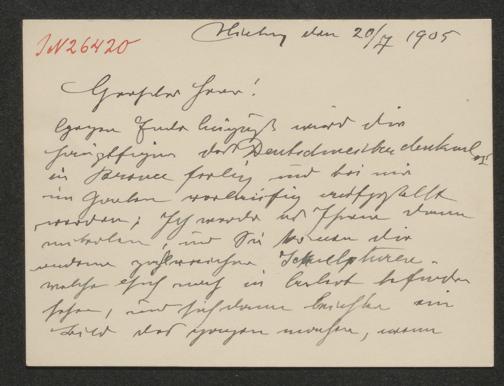 JN 26420
Hietzing den 20/7 1905
Geehrter Herr!
Gegen Ende August wird die
Hauptfigur des Deutschmeisterdenkmals
in Bronce fertig und bei mir
im Garten vorläufig aufgestellt
werden; Ich werde es Ihnen dann
mitteilen, und Sie können die
anderen zahlreichen Skulpturen
welche sich noch in Arbeit befinden
sehen, und sich dann leichter ein
Bild des ganzen machen, wenn